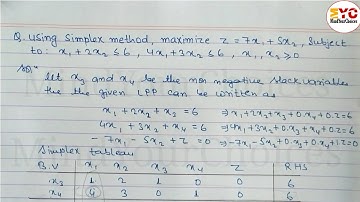 MYC
MathYourChoices
Q. Using Simplex method, maximize Z = 7x₁ + 5x₂, Subject
to: x₁ + 2x₂ ≤ 6, 4x₁ + 3x₂ ≤ 6, x₁, x₂ ≥ 0
Solⁿ Let x₃ and x₄ be the non negative slack variables
the the given LPP can be written as
x₁ + 2x₂ + x₃ = 6 ⇒ x₁ + 2x₂ + x₃ + 0.x₄ + 0.Z = 6
4x₁ + 3x₂ + x₄ = 6 ⇒ 4x₁ + 3x₂ + 0.x₃ + x₄ + 0.Z = 6
-7x₁ - 5x₂ + Z = 0 ⇒ -7x₁ - 5x₂ + 0.x₃ + 0.x₄ + Z = 0
Simplex tableau
B.V x₁ x₂ x₃ x₄ Z RHS
x₃ 1 2 1 0 0 6
x₄ 4 3 0 1 0 6